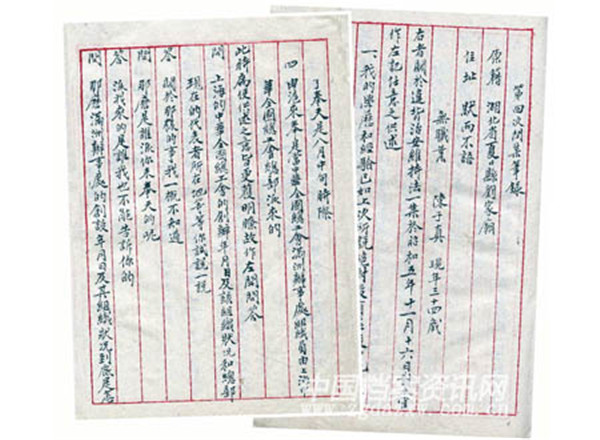 第四次問答筆錄
原籍 湖北省夏口縣劉家廟
住址 狀而不語
無職業 陳子真 現年三十四歲
右者關於違背治安維持法一案於昭和五年十一月十六日
作左記任意之供述
一、我的學歷和經驗已如上次所說
了奉天是八月中旬時際
四 由滬來奉是當中華全國總工會滿洲辦事處組織員由上海中
華全國總工會總部派來的
此時為使供述之言皆更覆明瞭故作左開問答
問 上海的中華全國總工會的創辦年月日及該組織狀況和總部
現在的代表者所在地云等你試說一說
答 關於那樣的事我一概不知道
問 那麼是誰派你來奉天的呢
答 派我來的是誰我也不能告訴你的
問 那麼滿洲辦事處的創設年月日及其組織狀況到底是若
中国档案资讯网